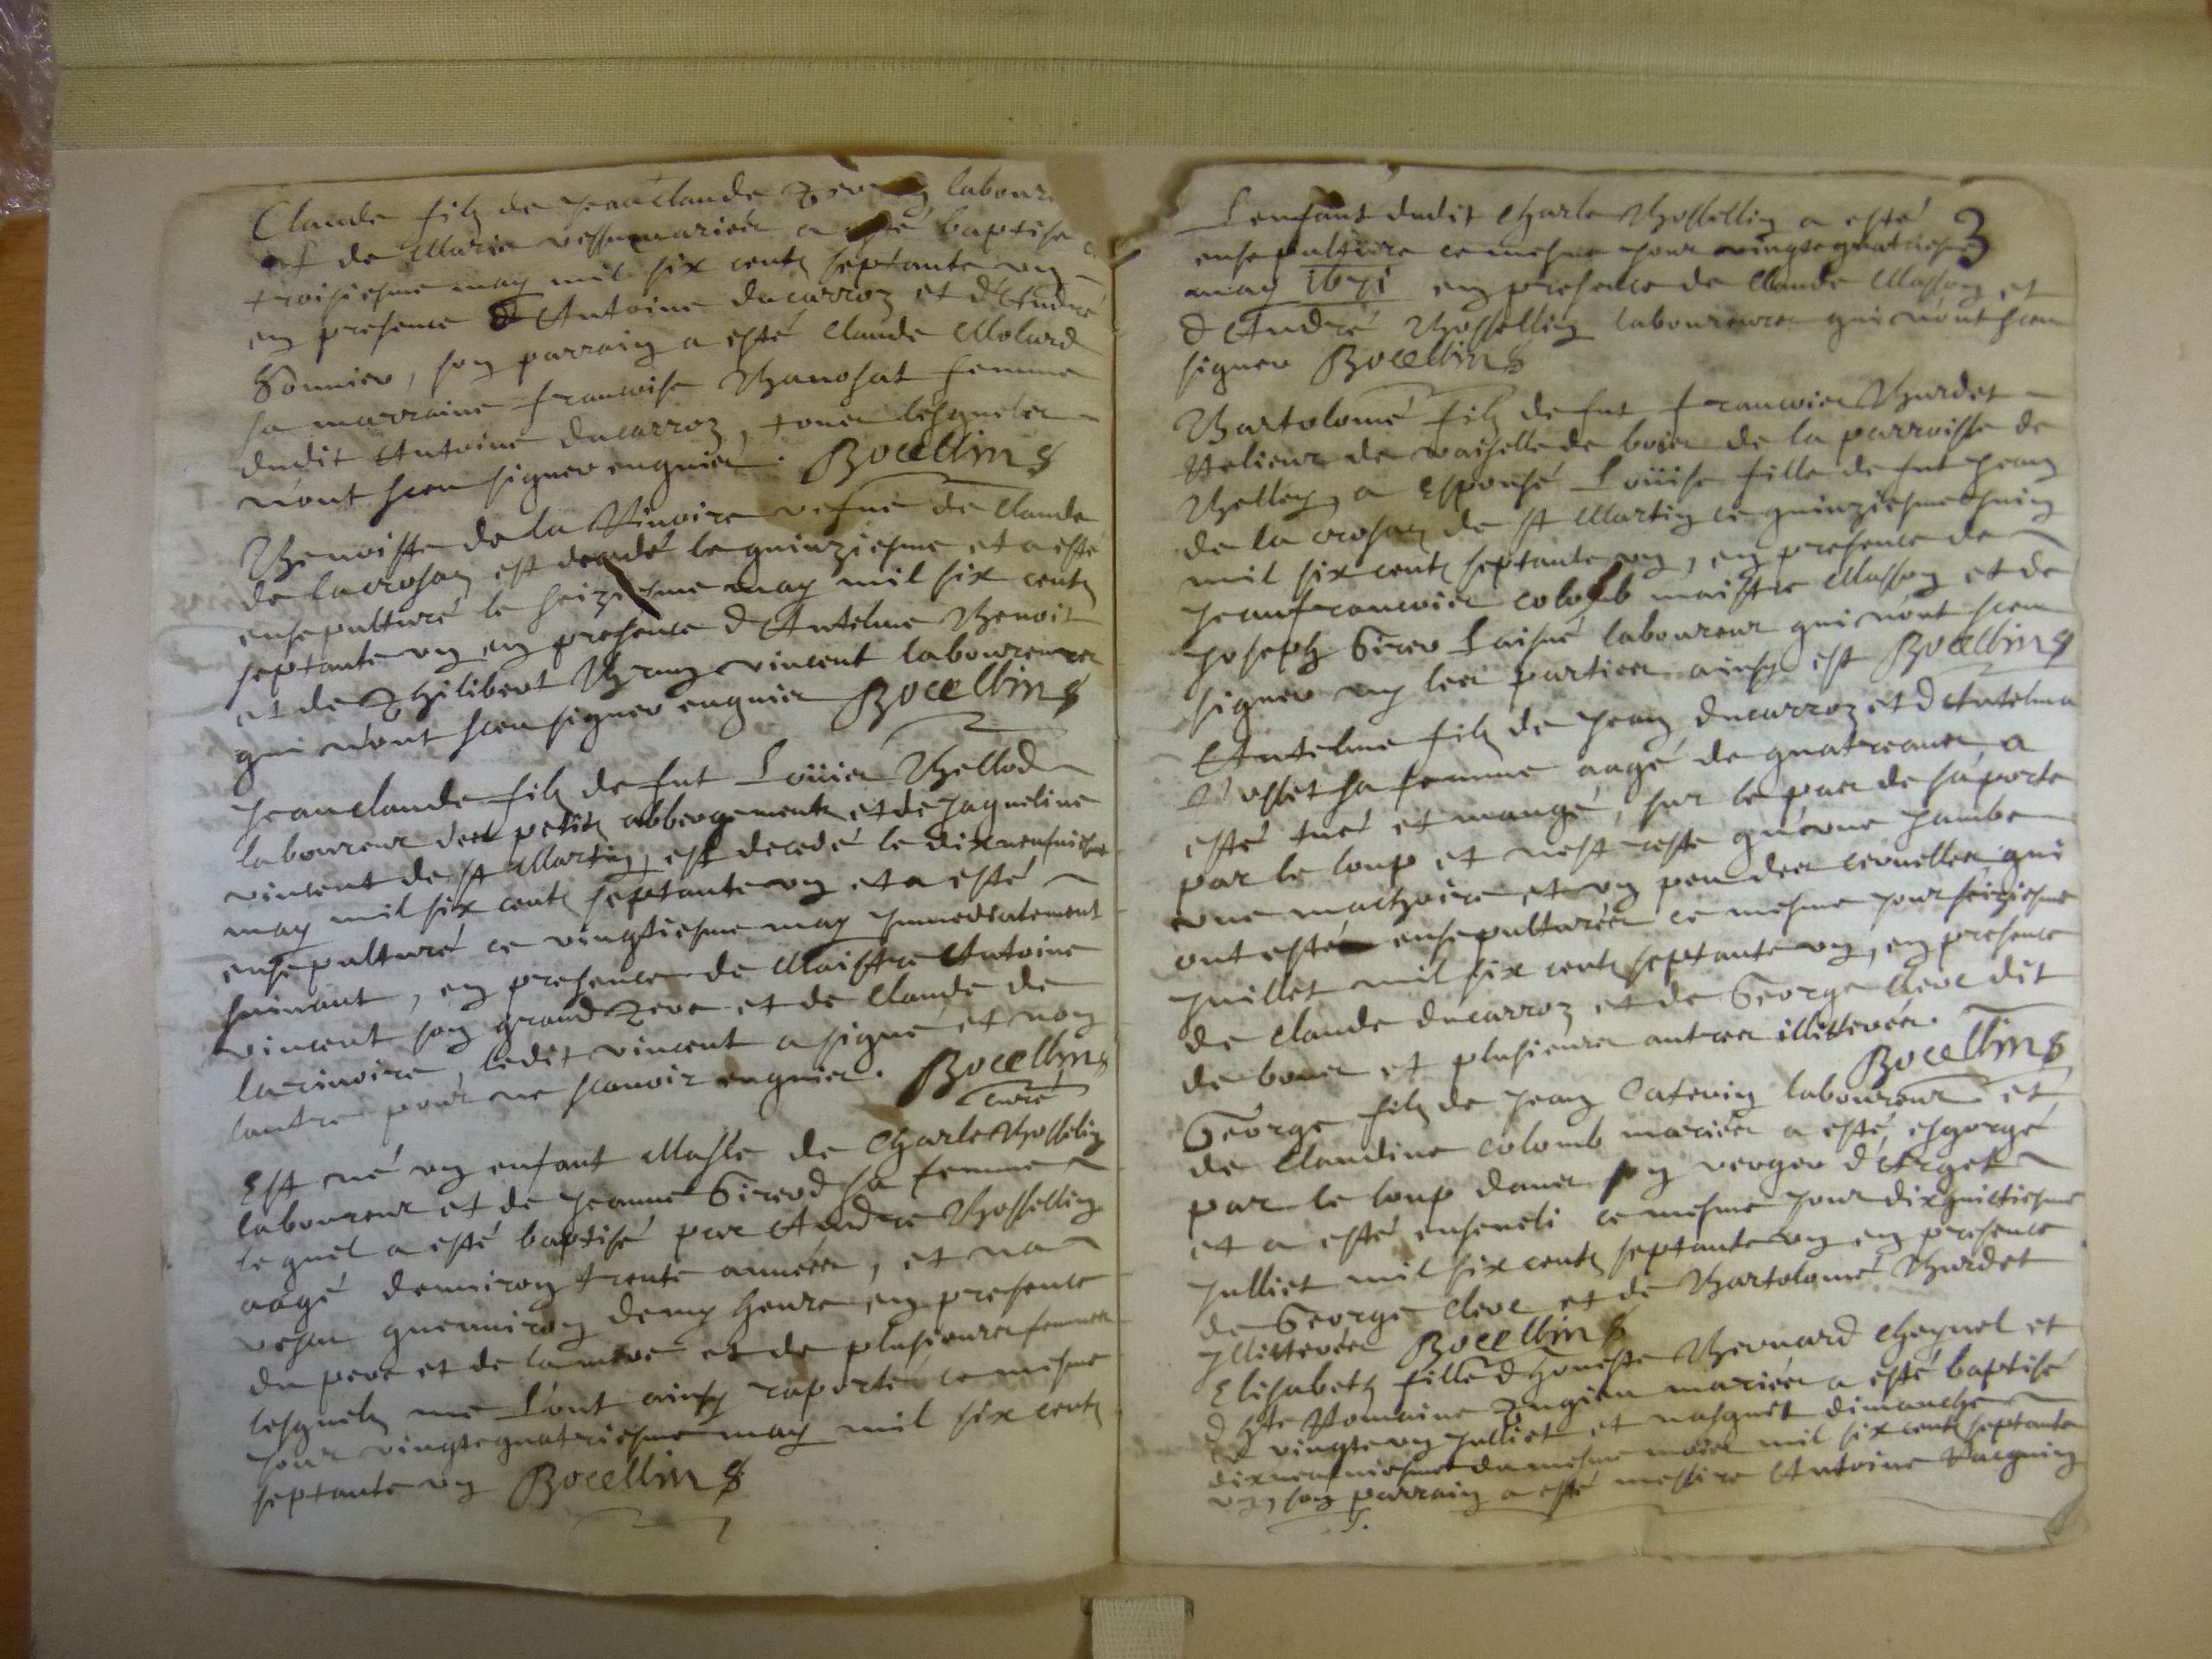 Claude filz de Jeanclaude labour
et de Marie mariés a esté baptisé
troisiesme may mil six centz septante ung
en presence d'Antoine Ducarroz et d'André
Sonnier, son parrain a esté Claude Molard
sa marraine francoise Banosat femme
dudit Antoine Ducarroz, tous lesquelz
n'ont sceu signer enquis. Bocellins
Benoiste de la Vinoire vefue de Claude
de lacrosaz est decedé le quinziesme et a esté
ensepulturé le seiziesme may mil six centz
septante ung en presence d'Antelme Benoit
et de Philibert Brun vincent laboureurs
qui n'ont sceu signer enquis Bocellins
Jeanclaude filz de fut Loüis Bellod
laboureur des petitz abbergementz et de Jaqueline
vincent de St Martin, est decedé le dixneufuiesme
may mil six centz septante ung et a esté
ensepulturé ce vingtiesme may Immediatement
suiuant, en presence de Maistre Antoine
vincent son grand Pere et de Claude de
lavinoire, ledit vincent a signé et non
lautre pour ne scauoir enquis. Bocellins
curé
Est né ung enfant Masle de Charle Bosselin
laboureur et de Jeanne Girerd sa femme
lequel a esté baptisé par Andre Bossellin
aagé denuiron trente années, et na
vescu quenuiron demy heure en presence
du pere et de la mere et de plusieurs femmes
lesquelz me l'ont ainsy raporté ce mesme
jour vingtequatriesme may mil six centz
septante ung Bocellins
L'enfant dudit Charle Bossellin a esté 3
ensepulturé ce mesme jour vingtequatriesme
may 1671 en presence de Claude Masson et
d'André Bossellin laboureurs qui n'ont sceu
signer Bocellins
Bartolomé filz de fut francois Burdet
de vaiselle de bois de la parroisse de
Belley, a Espousé Loüise fille de fut Jean
de la crosaz de St Martin ce quinziesme Juin
mil six centz septante ung, en presence de
Jeanfrancois colomb maistre Masson et de
Joseph Girer Laisné laboureur qui n'ont sceu
signer ny les parties ainsy est Bocellins
Antelme filz de Jean Ducarroz et d'Antelma
sa femme aagé de quatre ans a
esté tué et mangé, sur le pas de sa porte
par le loup et n'est resté qu'une jambe
une machoire et ung peu des ceruelles qui
ont esté ensepulturées ce mesme jour seiziesme
Juillet mil six centz septante ung, en presence
de Claude Ducarroz et de George Clerc dit
de bour et plusieurs autres illitterés.
Bocellins
George filz de Jean Caterin laboureur et
de Claudine colomb mariés a esté esgorgé
par le loup dans son verger d'Arget
et a esté enseueli ce mesme jour dixhuictiesme
Julliet mil six centz septante ung en presence
de George Clerc et de Bartolomé Burdet
Jllitterés Bocellins
Elisabeth fille d'honeste Bernard Cheynel et
d'hte Romaine mariés a esté baptisé
ce vingte ung Julliet et nasquit dimanche
dixneufuiesme du mesme mois mil six centz septante
ung, son parrain a esté messire Antoine